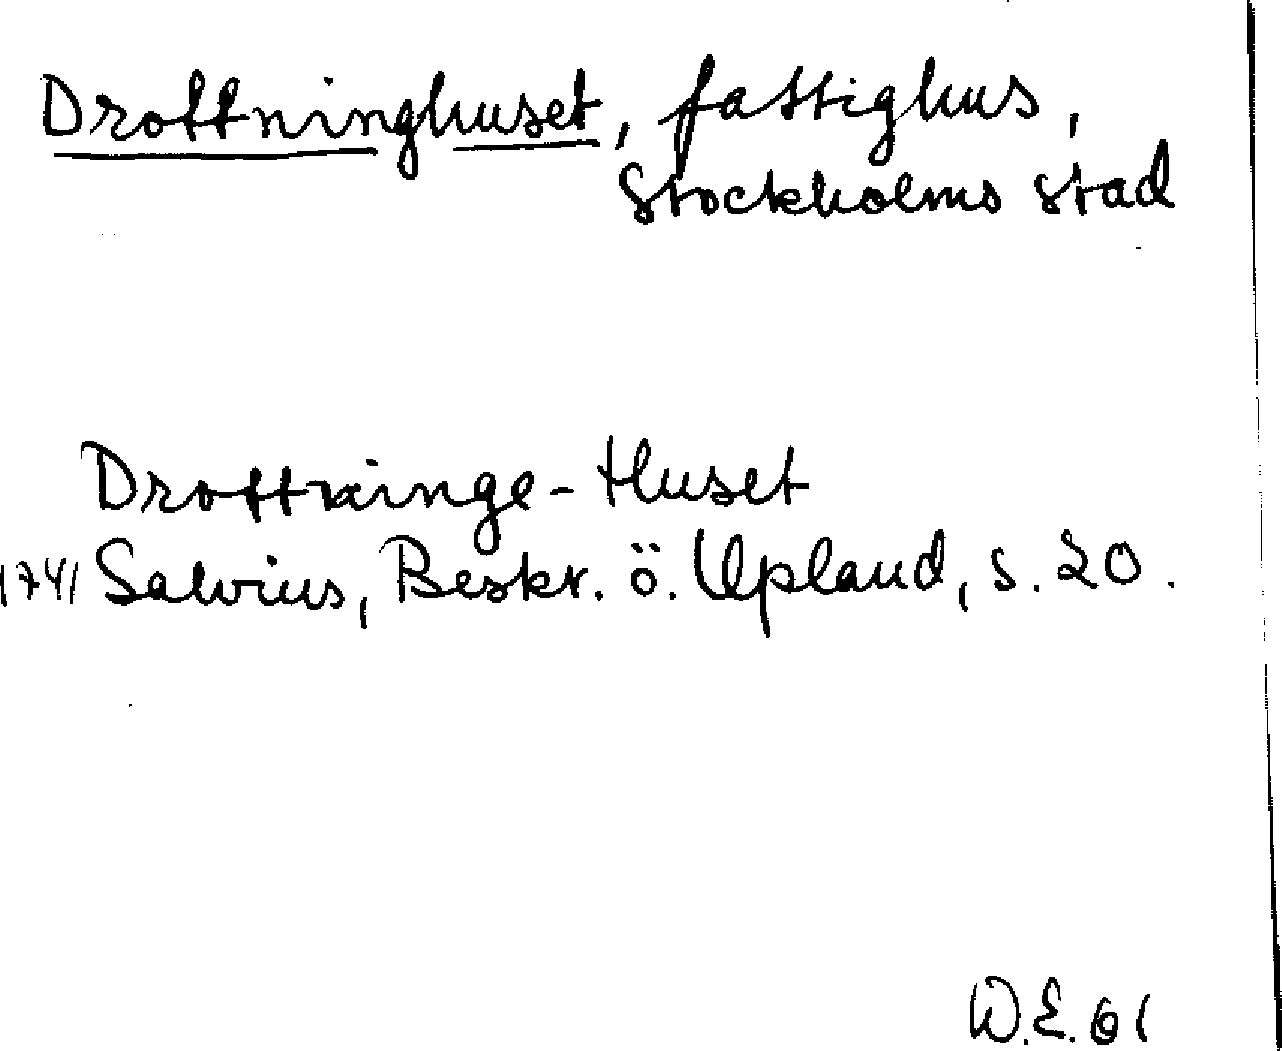 Drottninghuset, fattighus,
Stockholms stad
Drottninge-Huset
1741 Salvius, Beskr. ö. Upland, s. 20.
W.E. 61